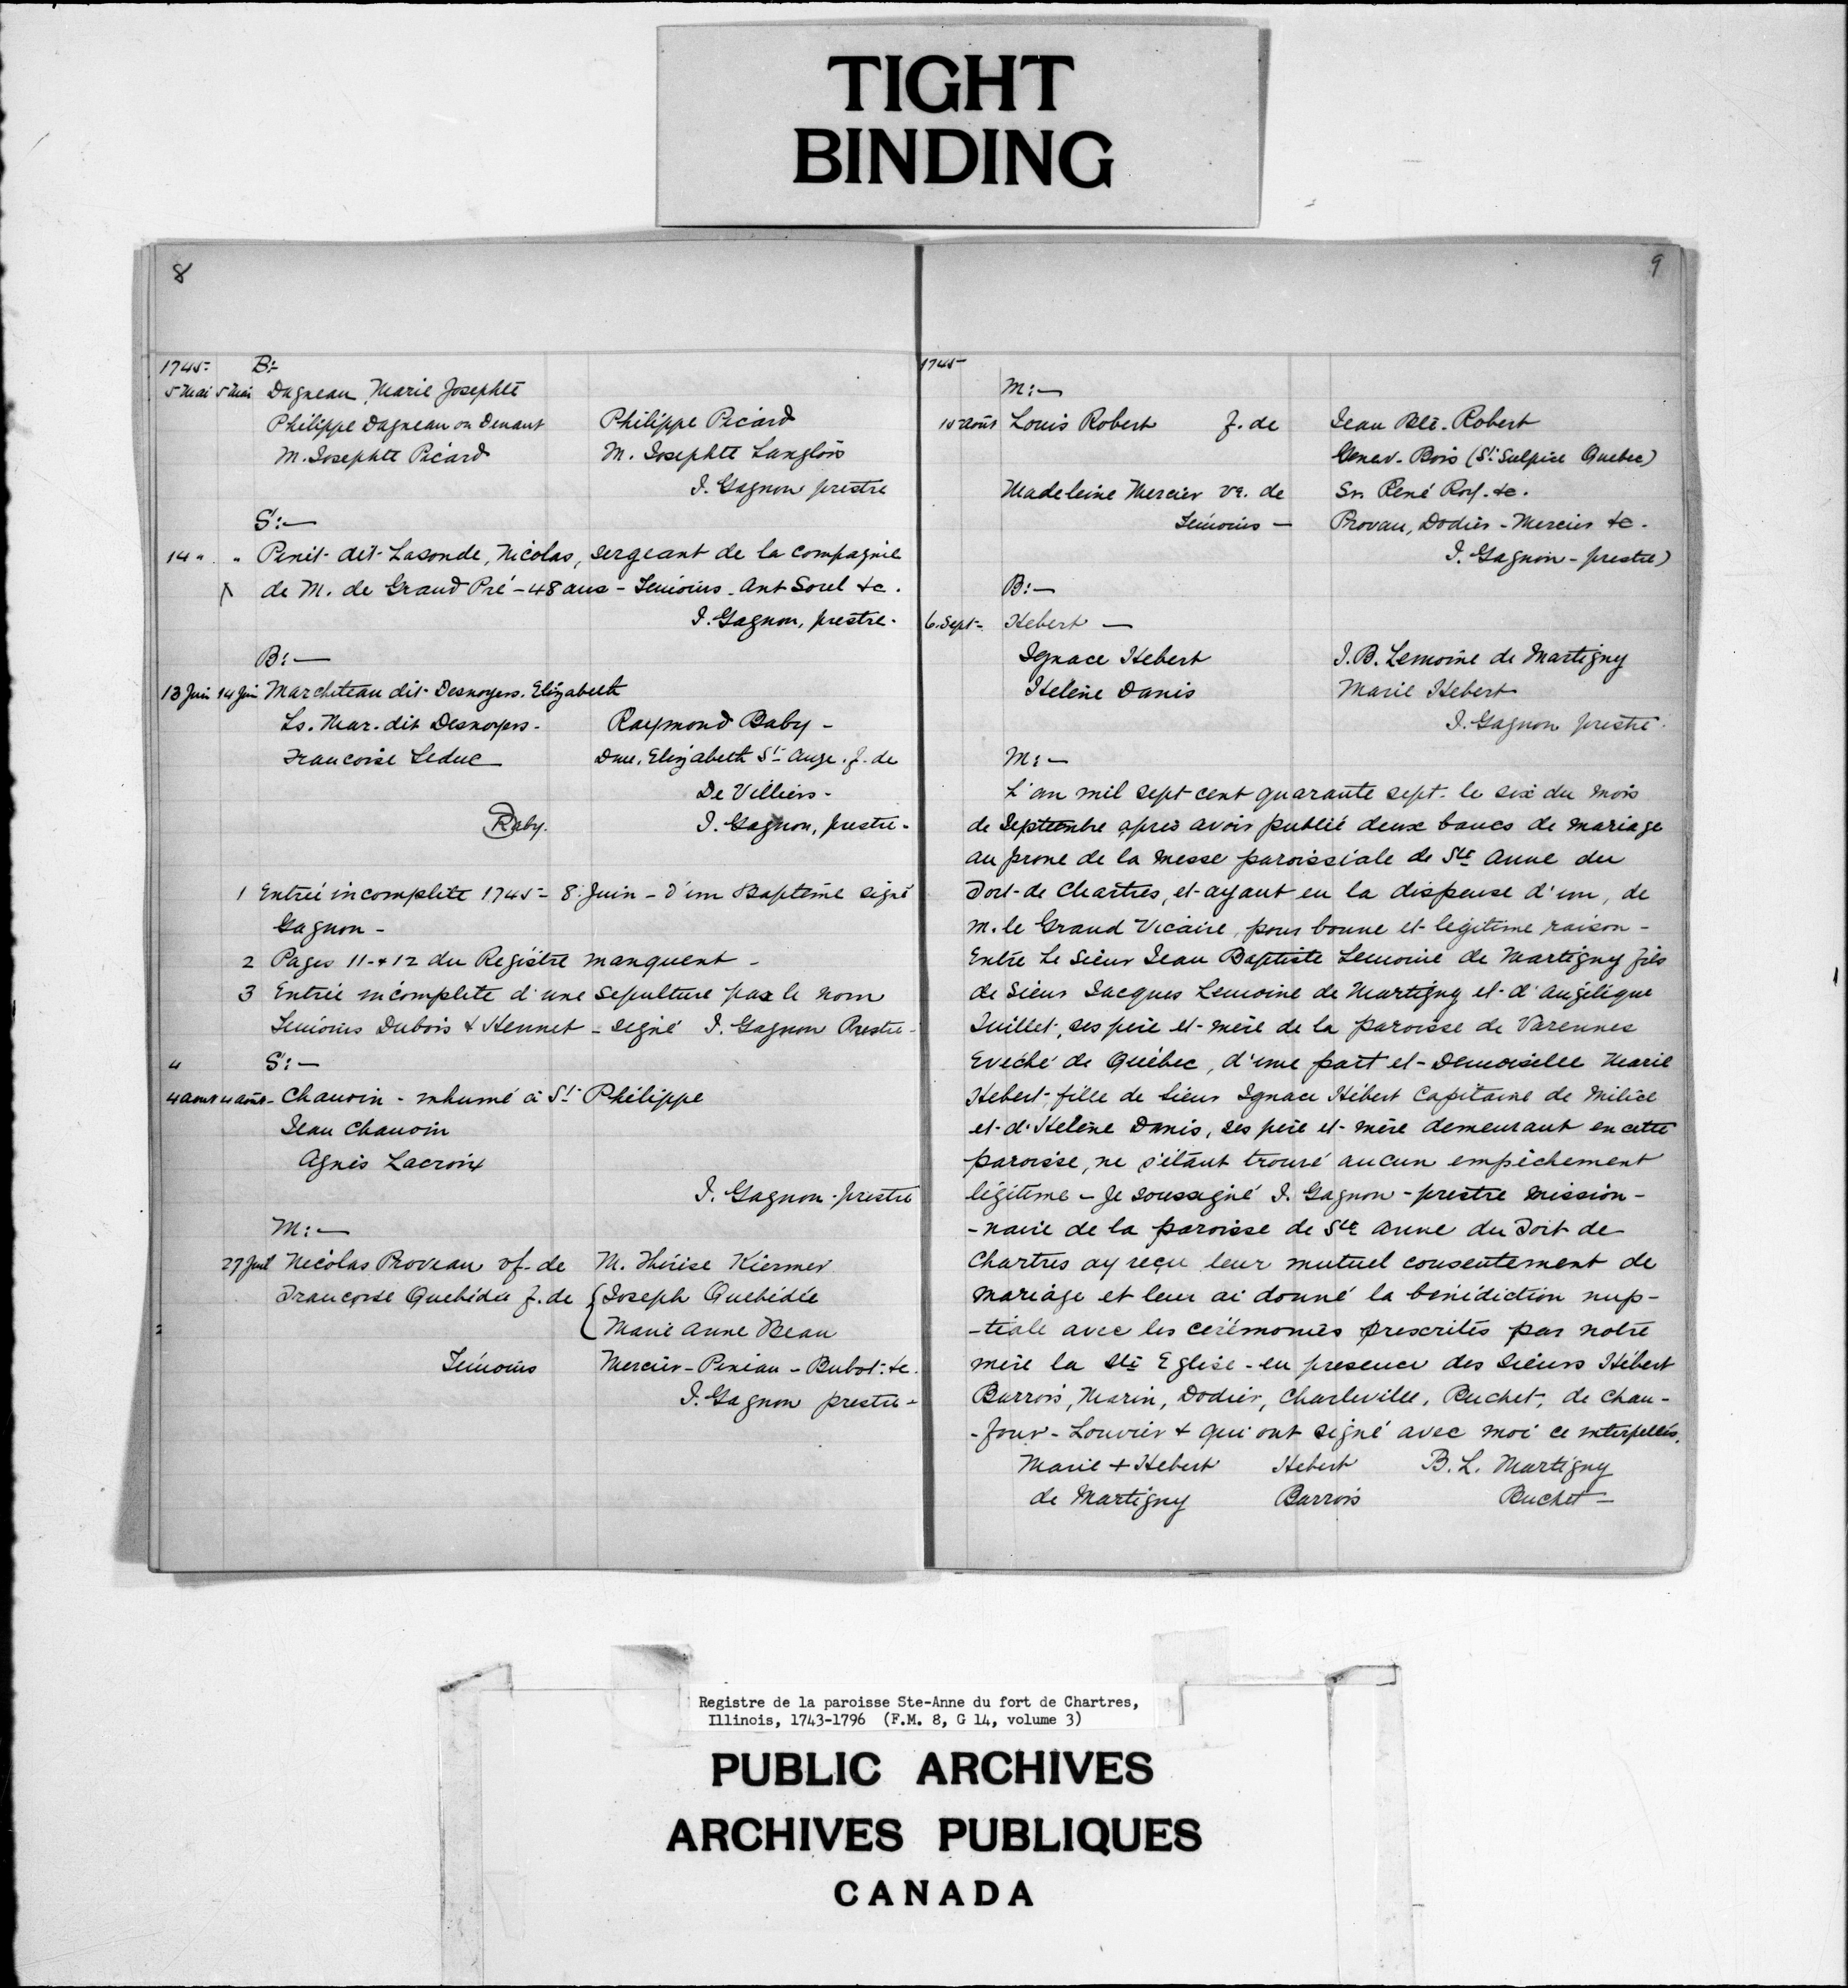 TIGHT
BINDING
8
1745- B:-
5 Mai 5 Mai Dagneau, Marie Josephte
Philippe Dagneau ou Denaut Philippe Picard
M. Josephte Picard M. Josephte Langlois
J. Gagnon prestre
S:-
14 " " Penit dit Lasonde, Nicolas, sergeant de la compagnie
de M. de Grand Pré - 48 ans - Témoins - Ant Sorel &c.
J. Gagnon, prestre.
B:-
13 Juin 14 Juin Marcheteau dit Desnoyers. Elizabeth
Ls. Mar. dit Desnoyers - Raymond Baby -
Francoise Leduc Dme. Elizabeth St Ange. f. de
De Villiers -
Raby. J. Gagnon, prestre -
1 Entrée incomplete 1745 - 8 Juin - d'un Baptême signé
Gagnon -
2 Pages 11 + 12 du Régistre manquent -
3 Entrée incomplete d'une sepulture pas le nom
Témoins Dubois & Hennet - signé J. Gagnon Prestre -
" S:-
4 aout 4 aout - Chauvin - inhumé à St Philippe
Jean Chauvin
Agnès Lacroix
J. Gagnon - prestre
M:-
27 Juil Nicolas Proveau vf. de M. Thérèse Kiermer
Françoise Quebédée f. de { Joseph Quebédée
Marie Anne Beau
Témoins Mercier - Peniau - Bubot - &c.
J. Gagnon prestre -
9
1745-
M:-
15 août Louis Robert f. de Jean Bte. Robert
Genev. Bois (St. Sulpice Quebec)
Madeleine Mercier ve. de Sr. René Roy. &c.
Témoins - Provau, Dodier - Mercier &c -
J. Gagnon - prestre)
B:-
6. Sept - Hebert -
Ignace Hebert J. B. Lemoine de Martigny
Hélène Danis Marie Hebert
J. Gagnon prestre.
M:-
L'an mil sept cent quarante sept - le six du mois
de Septembre apres avoir publié deux bancs de mariage
au prone de la messe paroissiale de Ste Anne du
Fort de Chartres, et ayant eu la dispense d'un, de
M. le Grand Vicaire, pour bonne et legitime raison -
Entre Le Sieur Jean Baptiste Lemoine de Martigny fils
de Sieur Jacques Lemoine de Martigny et d'Angélique
Guillet, ses père et mère de la paroisse de Varennes
Evêché de Québec, d'une part et Demoiselle Marie
Hebert, fille de Sieur Ignace Hébert Capitaine de Milice
et d'Hélène Danis, ses père et mère demeurant en cette
paroisse, ne s'étant trouvé aucun empêchement
légitime - Je soussigné J. Gagnon - prestre mission-
-naire de la paroisse de Ste Anne du Fort de
Chartres ay reçu leur mutuel consentement de
mariage et leur ai donné la bénédiction nup-
-tiale avec les cérémonies prescrites par notre
mère la Ste Eglise - en presence des Sieurs Hébert
Barrois, Marin, Dodier, Charleville, Buchet, de Chau-
-four - Louvier & qui ont signé avec moi ce interpellés.
Marie + Hebert Hebert B. L. Martigny
de Martigny Barrois Buchet -
Registre de la paroisse Ste-Anne du fort de Chartres,
Illinois, 1743-1796 (F.M. 8, G 14, volume 3)
PUBLIC ARCHIVES
ARCHIVES PUBLIQUES
CANADA